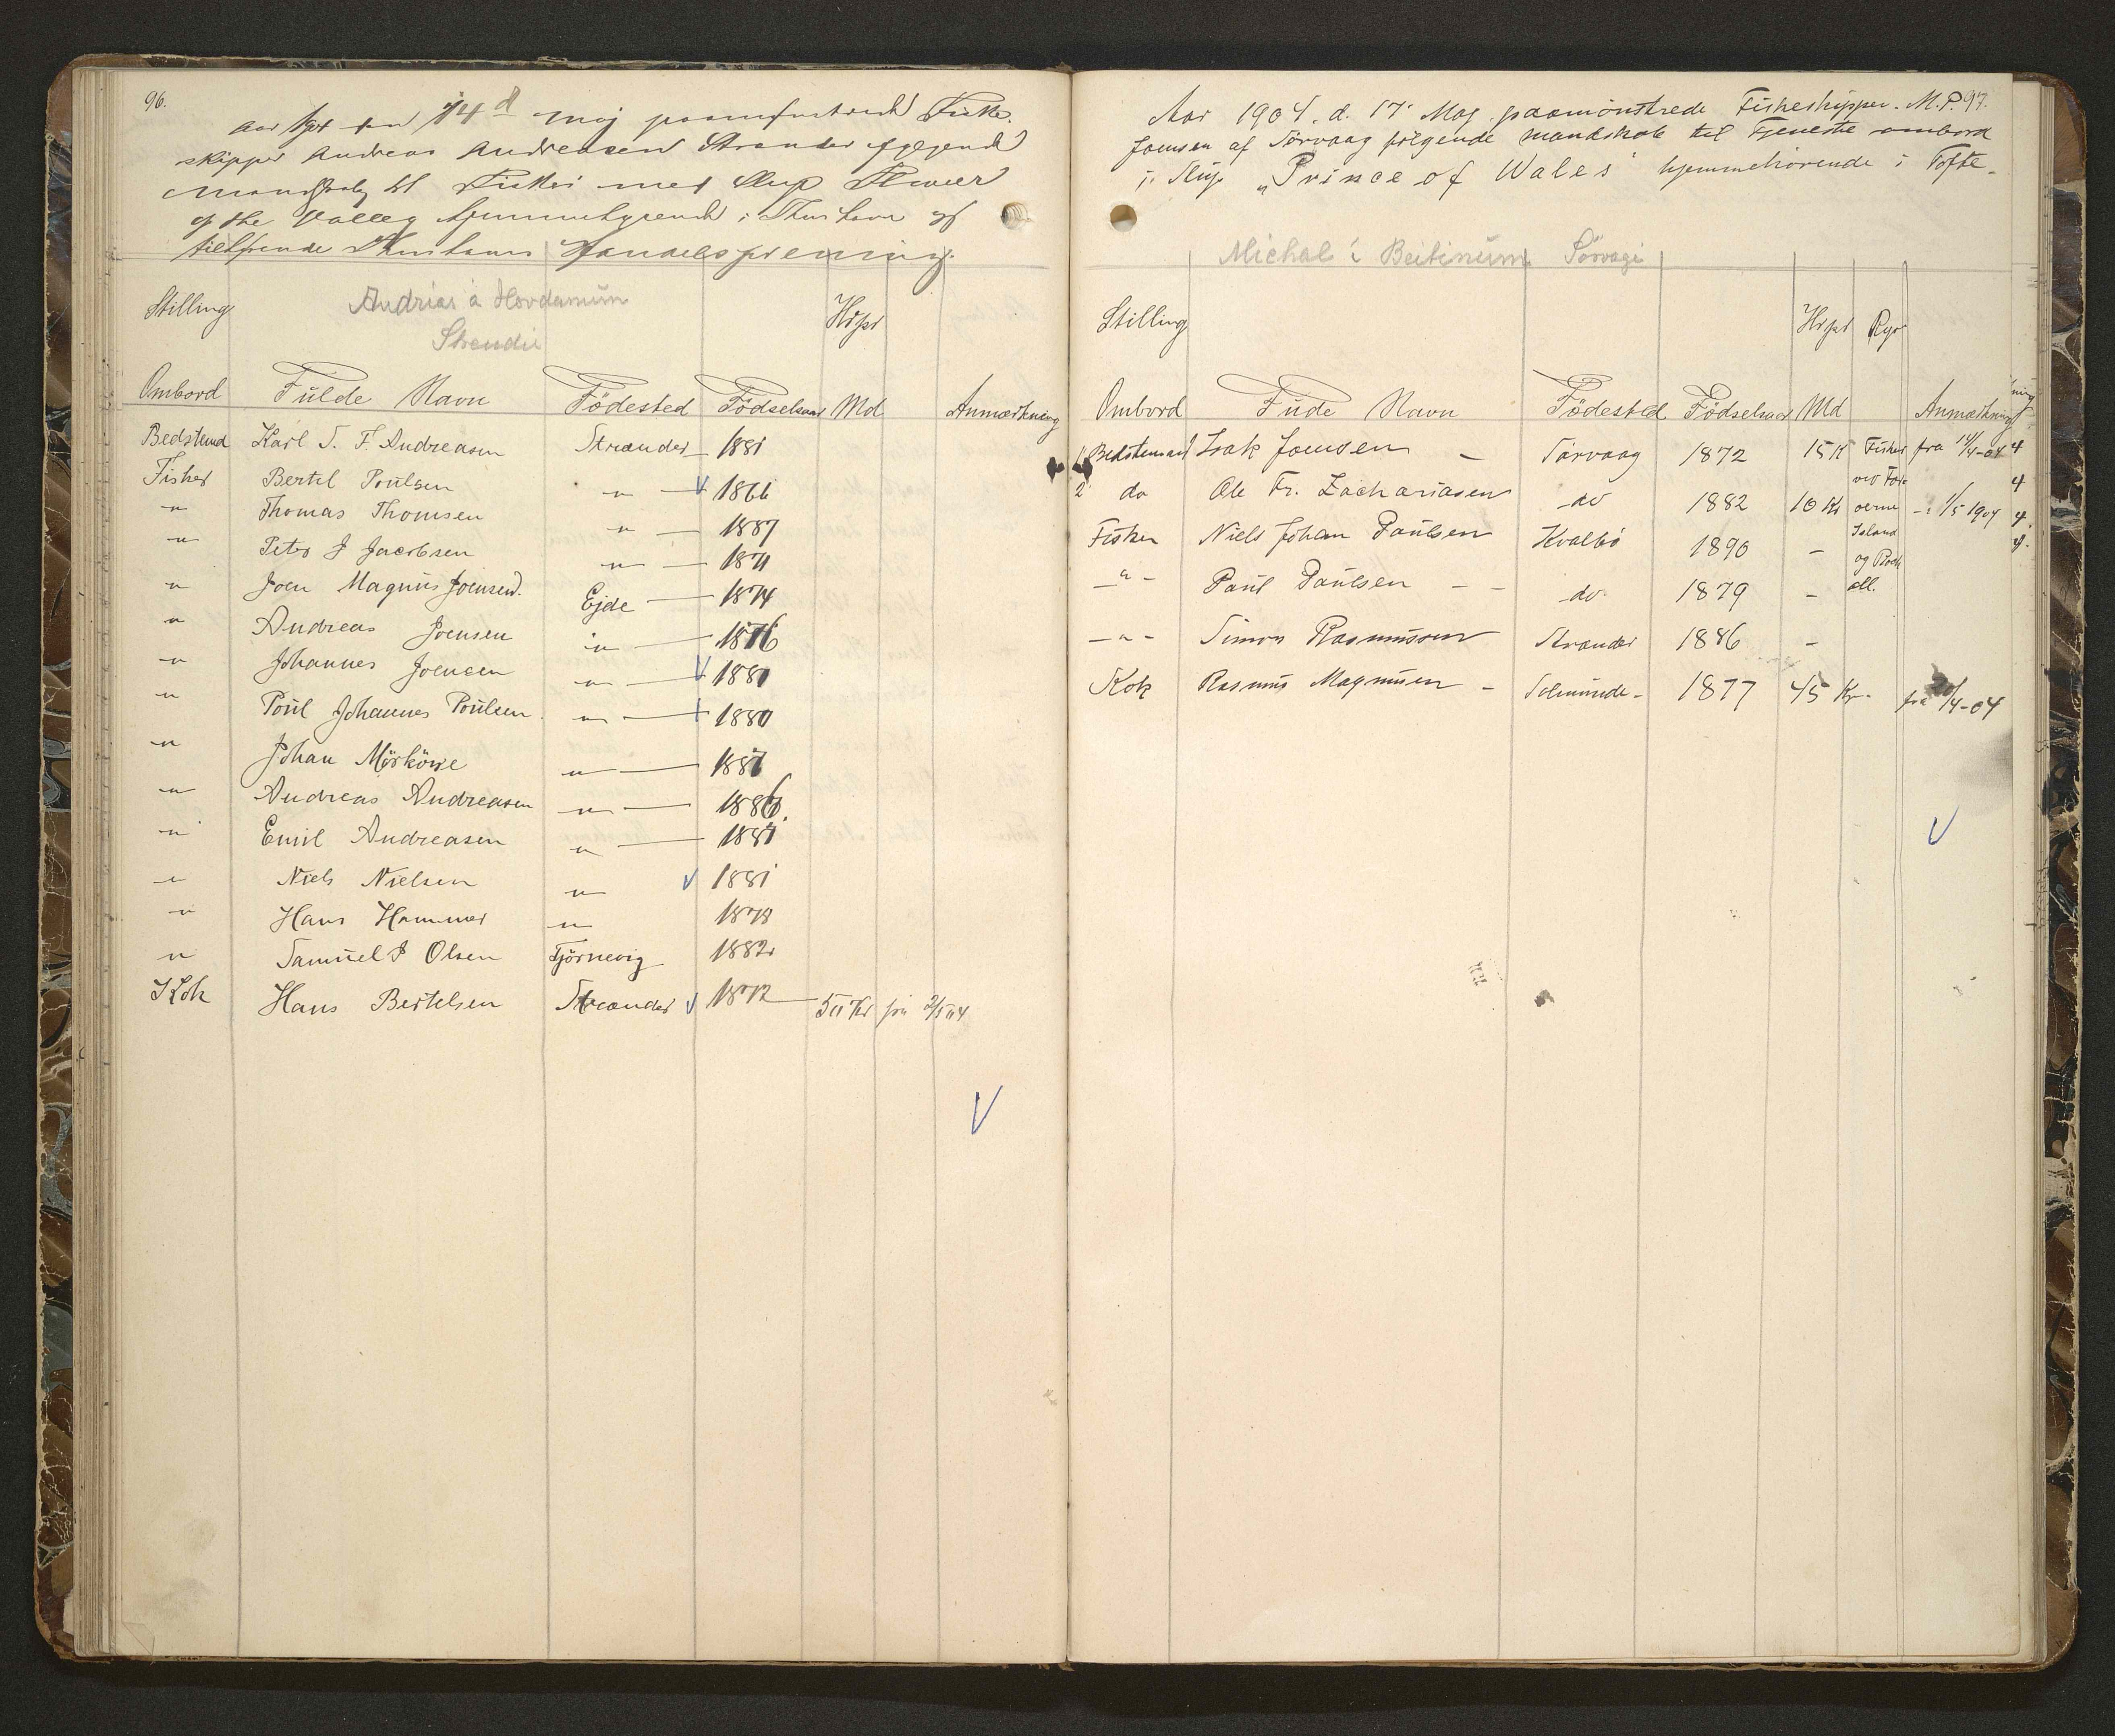 96.
Aar 1904 den 14d Maj paamönstrede Fiske-
skipper Andreas Andreasen Strander fylgende
Mandskab til Fiskeri med Slup Flower
of the Valley hjemmehyrende i Thorshavn og
tilhyrende Thorshavns Handelsforening.
Andrias á Hovdanum
Strendir
Stilling Hyre
Ombord Fulde Navn Födested Födselsaar Md Anmærkning
Bedstmd Karl S. F. Andreasen Strander 1881
Fisker Bertel Poulsen " V 1866
" Thomas Thomsen " 1887
" Peter J Jacobsen " 1871
" Joen Magnus Joensen. Ejde 1874
" Andreas Joensen " 1876
" Johannes Joensen " V 1881
" Poul Johannes Poulsen " 1880
" Johan Mörköre " 1887
" Andreas Andreasen " 1886.
" Emil Andreasen " 1887
" Niels Nielsen " V 1881
" Hans Hammer " 1878
" Samuel J Olsen Tjörnevig 1882
Kok Hans Bertelsen Strander V 1872 50 Kr fra 2/5 04
V
97.
Aar 1904. d. 17 Maj. paamönstrede Fiskeskipper. M. P.
Joensen af Sørvaag følgende mandskab til Tjeneste ombord
i Slup „Prince of Wales" hjemmehörende i Tofte.
Michal í Beitinum Sörvagi
Stilling Hyre Rejse
Ombord Fude Navn Födested Födselsaar Md Anmærkning
1 Bedstemand Isak Joensen - Sørvaag 1872 15 K Fisker fra 14/4-04 4
2 do Ole Fr. Zachariasen do 1882 10 Kr ved Fær 4
oerne - 1/5 1904 4
Fisker Niels Johan Paulsen Kvalbö 1890 - Island 4
og Rock
-"- Paul Paulsen - - do 1879 - all.
-"- Simon Rasmussen Strander 1886 -
Kok Rasmus Magnusen - Solmunde- 1877 45 Kr. fra /4-04
V